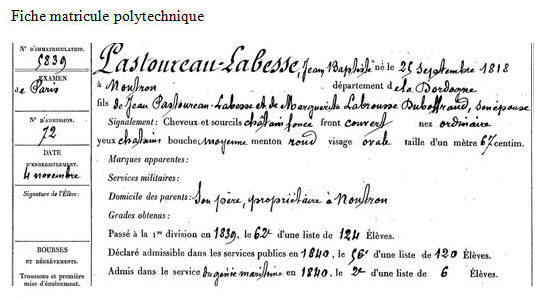 Fiche matricule polytechnique
N° D'IMMATRICULATION.
5839
EXAMEN
de Paris
N° D'ADMISSION.
72
DATE
D'ENREGISTREMENT.
4 novembre
Signature de l'Élève:
BOURSES
ET DÉGRÈVEMENTS.
Trousseau et première
mise d'équipement.
Pastoureau-Labesse, Jean Baptiste né le 25 Septembre 1818
à Nontron département de la Dordogne
fils de Jean Pastoureau-Labesse et de Marguerite Labrousse Duboffrand, son épouse
Signalement: Cheveux et sourcils châtain foncé front couvert nez ordinaire
yeux chatains bouche moyenne menton rond visage ovale taille d'un mètre 67 centim.
Marques apparentes:
Services militaires:
Domicile des parents: Son père, propriétaire à Nontron
Grades obtenus:
Passé à la 1re division en 1839, le 62e d'une liste de 124 Élèves.
Déclaré admissible dans les services publics en 1840, le 56e d'une liste de 120 Élèves.
Admis dans le service du génie maritime en 1840, le 2e d'une liste de 6 Élèves.